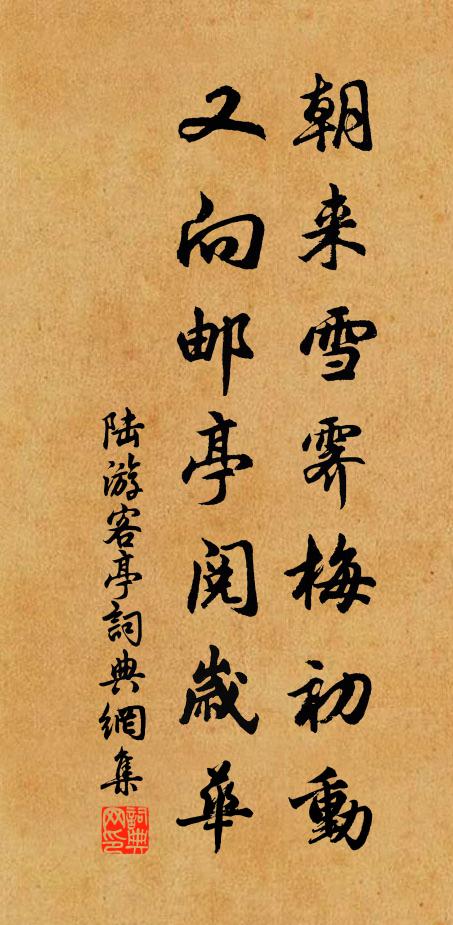 朝来雪霁梅初動
又向邮亭阅歳華
陆游客亭詞典網集
詞典网印